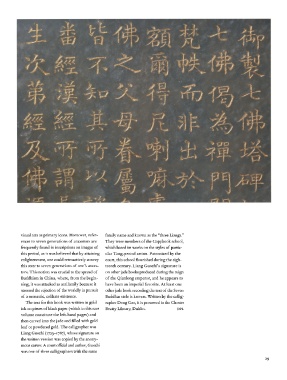 御製七佛塔碑
七佛偈為禪門
梵帙而非出於
額爾得尼喇嘛
佛之父母眷屬
皆不知其所以
畨經漢經所謂
生次弟經及佛
visual arts as primary icons. Moreover, refer-
ences to seven generations of ancestors are
frequently found in inscriptions on images of
this period, as it was believed that by attaining
enlightenment, one could retroactively convey
this state to seven generations of one's ances-
tors. This notion was crucial to the spread of
Buddhism in China, where, from the begin-
ning, it was attacked as anti-family because it
seemed the opinion of the worldly in pursuit
of a monastic, celibate existence.
The text for this book was written in gold
ink on pieces of black paper
and
then carved into the jade and filled with gold
leaf or powdered gold. The calligrapher was
Liang Guozhi (1723–1787), whose signature on
the written version was copied by the anony-
mous carver. A court official and author, Guozhi
was one of three calligraphers with the same
family name and known as the "three Liangs."
They were members of the Copybook school,
which based its works on the styles of partic-
ular Tang-period artists. Patronized by the
court, this school flourished during the eigh-
teenth century. Liang Guozhi's signature is
on other jade books produced during the reign
of the Qianlong emperor, and he appears to
have been an imperial favorite. At least one
other jade book recording the text of the Seven
Buddhas stele is known. Written by the callig-
rapher Dong Gao, it is preserved in the Chester
Beatty Library, Dublin.